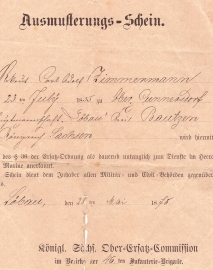 Ausmusterungs-Schein.
Carl Adolf Zimmermann
23 ten July 1855 zu Ober Cunnersdorf
Löbau Kreis Bautzen
Königreich Sachsen wird hiermit
der Ersatz-Ordnung als dauernd untauglich zum Dienste im Heere
Marine anerkannt.
Schein dient dem Inhaber allen Militär- und Civil-Behörden gegenüber
Löbau, den 28 ten Mai 1875
Königl. Sächs. Ober-Ersatz-Commission
im Bezirke der Infanterie-Brigade.